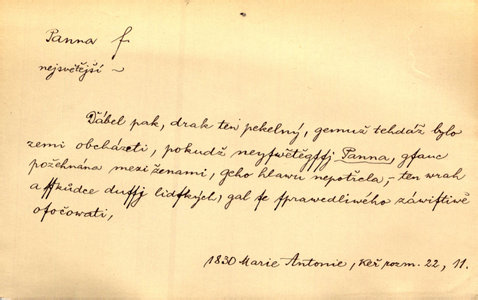 Panna f
nejsvětější ~
Ďábel pak, drak ten pekelný, gemuž tehdáž bylo
zemi obcházeti, pokudž neyſwětěgſſj Panna, gſauc
požehnána mezi ženami, geho hlawu nepotřela, – ten wrah
a ſſkůdce duſſj lidſkých, gal ſe ſprawedliwého záwiſtiwě
oſočowati,
1830 Marie Antonie, Keř rozm. 22, 11.